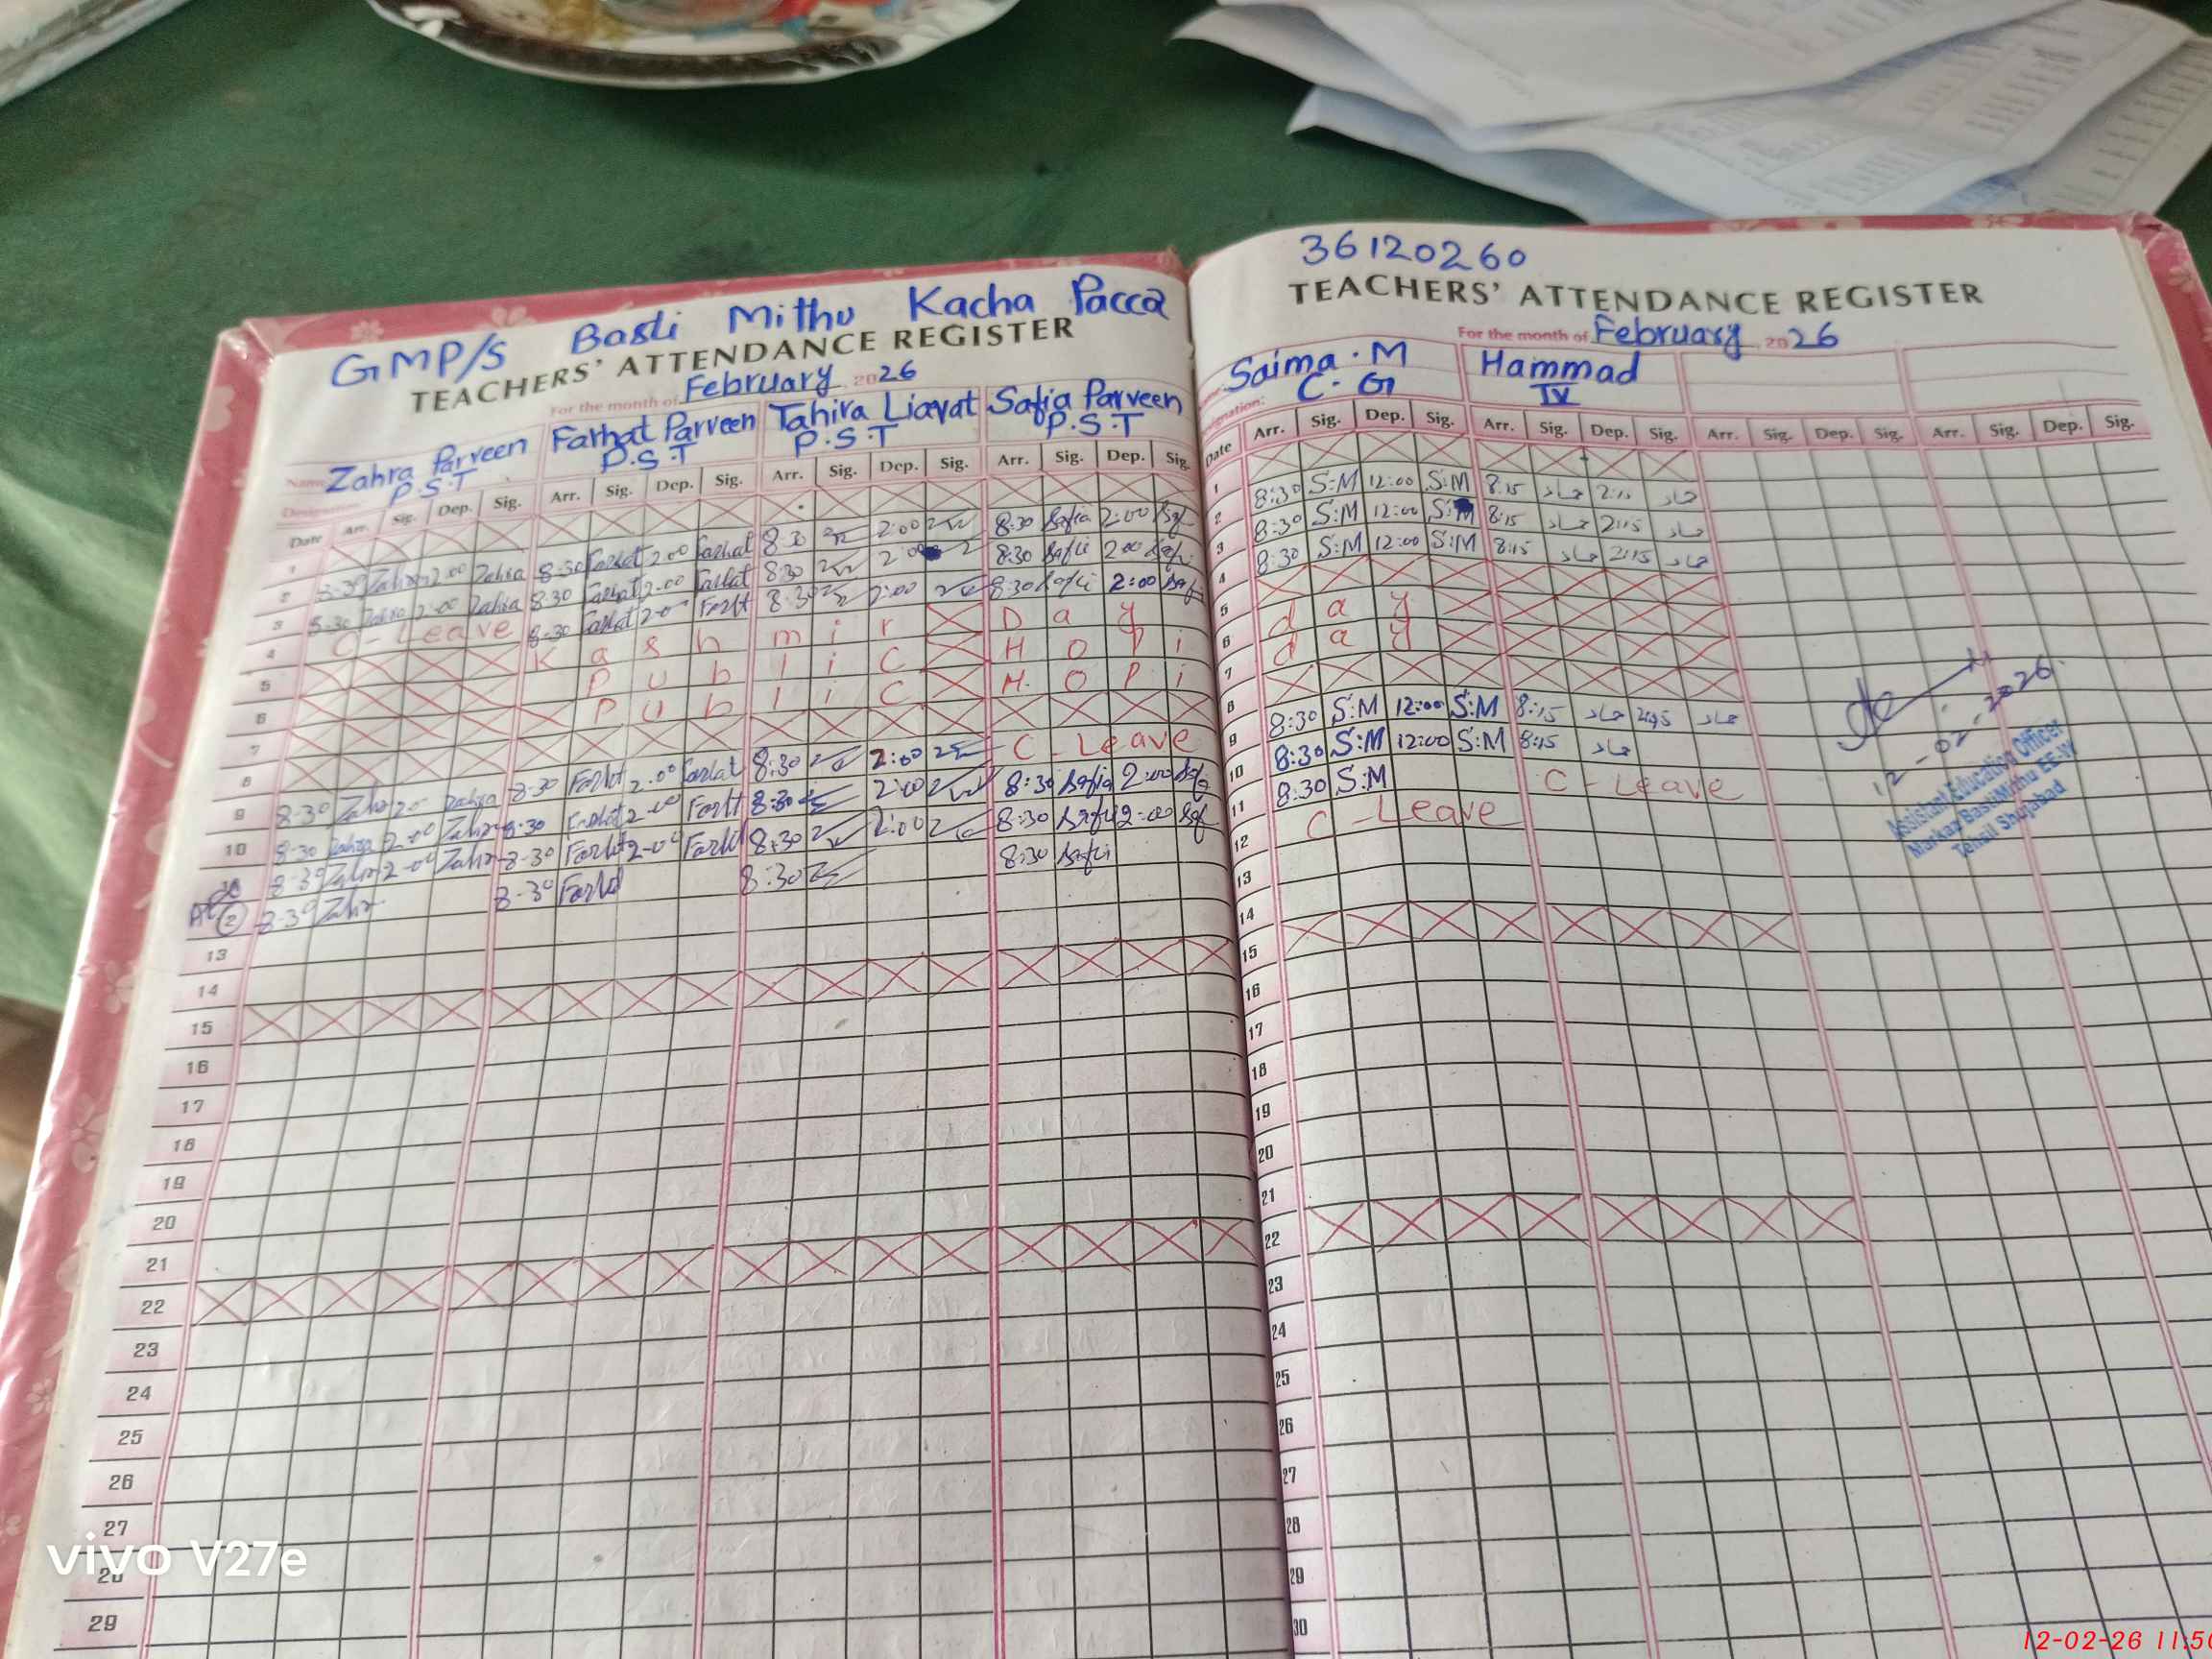 GMP/S Basti Mithu Kacha Pacca
TEACHERS' ATTENDANCE REGISTER
For the month of February 2026
Zahra Parveen Farhat Parveen Tahira Liaqat Safia Parveen
P.S.T P.S.T P.S.T P.S.T
Date Arr. Sig. Dep. Sig. Arr. Sig. Dep. Sig. Arr. Sig. Dep. Sig. Arr. Sig. Dep. Sig.
1
2 8:30 Zahra 2:00 Zahra 8:30 Farhat 2:00 Farhat 8:30 2:00 8:30 Safia 2:00
3 8:30 Zahra 2:00 Zahra 8:30 Farhat 2:00 Farhat 8:30 2:00 8:30 2:00
4 C-Leave 8:30 Farhat 8:30 2:00 8:30 2:00
5 Kashmir Day
6 Public Holi
7 Public Holi
8
9 8:30 8:30 2:00 8:30 2:00 C-Leave
10 8:30 Zahra 2:00 8:30 2:00 8:30 2:00 8:30 Safia 2:00
8:30 2:00 8:30 2:00 8:30 2:00 8:30 2:00
8:30 8:30 8:30 8:30
13
14
15
16
17
18
19
20
21
22
23
24
25
26
27
29
36120260
TEACHERS' ATTENDANCE REGISTER
For the month of February 2026
Saima.M Hammad
C.G IV
Date Arr. Sig. Dep. Sig. Arr. Sig. Dep. Sig. Arr. Sig. Dep. Sig. Arr. Sig. Dep. Sig.
1
2 8:30 S:M 12:00 S:M 8:15 حماد حماد
3 8:30 S:M 12:00 S:M 8:15 حماد 2:15 حماد
4 8:30 S:M 12:00 S:M 8:15 حماد 2:15 حماد
5
6 day
7 day
8
9 8:30 S:M 12:00 S:M 8:15 حماد حماد
10 8:30 S:M 12:00 S:M 8:15 حماد
11 8:30 S:M C-Leave
12 C-Leave
13
14
15
16
17
18
19
20
21
22
23
24
25
26
27
28
29
30
12-02-2026
Assistant Education Officer
Markaz Basti Mithu EE-W
Tehsil Shujabad
vivo V27e
12-02-26